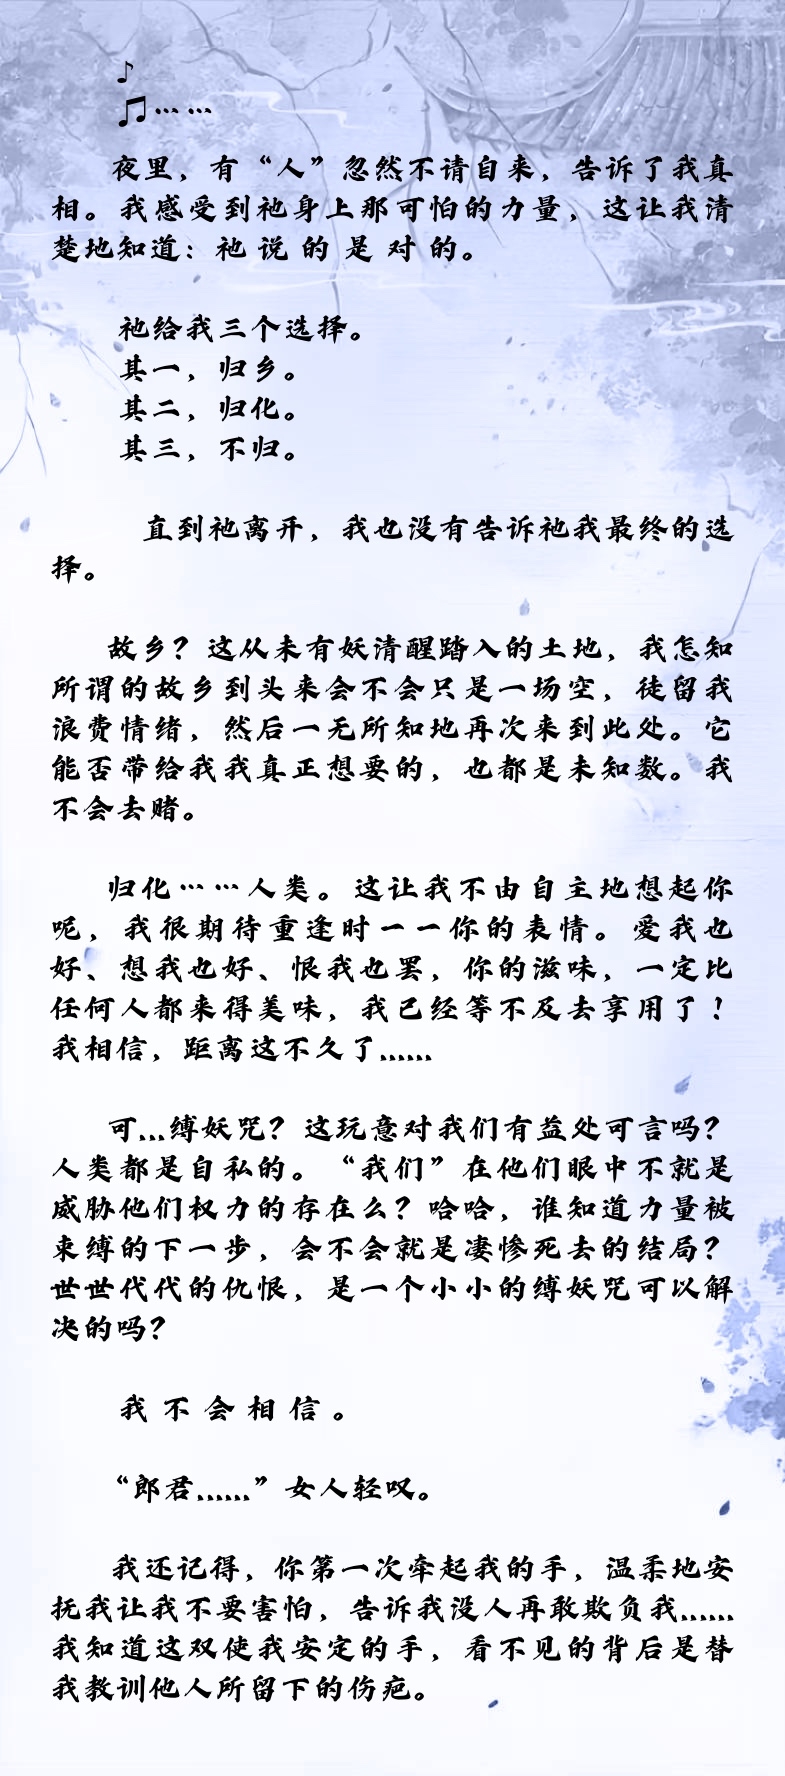 ♪
♫……
夜里，有“人”忽然不请自来，告诉了我真
相。我感受到祂身上那可怕的力量，这让我清
楚地知道：祂 说 的 是 对 的。
祂给我三个选择。
其一，归乡。
其二，归化。
其三，不归。
直到祂离开，我也没有告诉祂我最终的选
择。
故乡？这从未有妖清醒踏入的土地，我怎知
所谓的故乡到头来会不会只是一场空，徒留我
浪费情绪，然后一无所知地再次来到此处。它
能否带给我我真正想要的，也都是未知数。我
不会去赌。
归化……人类。这让我不由自主地想起你
呢，我很期待重逢时一一你的表情。爱我也
好、想我也好、恨我也罢，你的滋味，一定比
任何人都来得美味，我已经等不及去享用了！
我相信，距离这不久了......
可...缚妖咒？这玩意对我们有益处可言吗？
人类都是自私的。“我们”在他们眼中不就是
威胁他们权力的存在么？哈哈，谁知道力量被
束缚的下一步，会不会就是凄惨死去的结局？
世世代代的仇恨，是一个小小的缚妖咒可以解
决的吗？
我 不 会 相 信 。
“郎君......”女人轻叹。
我还记得，你第一次牵起我的手，温柔地安
抚我让我不要害怕，告诉我没人再敢欺负我......
我知道这双使我安定的手，看不见的背后是替
我教训他人所留下的伤疤。